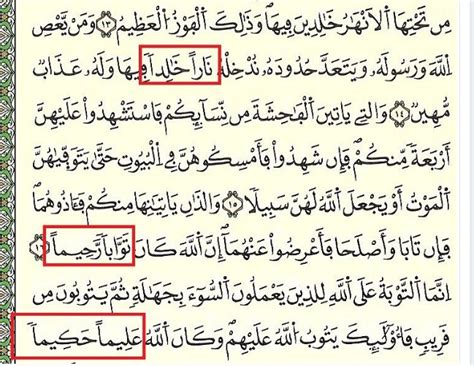 مِن تَحْتِهَا اَ۬لَانْهَٰرُ خَٰلِدِينَ فِيهَا وَذَٰلِكَ اَ۬لْفَوْزُ اُ۬لْعَظِيمُ ١٣ وَمَنْ يَّعْصِ
اِ۬للَّهَ وَرَسُولَهُۥ وَيَتَعَدَّ حُدُودَهُۥ نُدْخِلْهُ نَاراً خَٰلِداً فِيهَا وَلَهُۥ عَذَابٌ
مُّهِينٌ ١٤ وَالتِے يَاتِينَ اَ۬لْفَٰحِشَةَ مِن نِّسَآئِكُمْ فَاسْتَشْهِدُواْ عَلَيْهِنَّ
أَرْبَعَةً مِّنكُمْ فَإِن شَهِدُواْ فَأَمْسِكُوهُنَّ فِے اِ۬لْبُيُوتِ حَتَّىٰ يَتَوَفَّيٰهُنَّ
اَ۬لْمَوْتُ أَوْ يَجْعَلَ اَ۬للَّهُ لَهُنَّ سَبِيلًا ١٥ وَالذَٰنِ يَاتِيَٰنِهَا مِنكُمْ فَـَٔاذُوهُمَا
فَإِن تَابَا وَأَصْلَحَا فَأَعْرِضُواْ عَنْهُمَا إِنَّ اَ۬للَّهَ كَانَ تَوَّاباً رَّحِيماً ١٦
اِنَّمَا اَ۬لتَّوْبَةُ عَلَى اَ۬للَّهِ لِلذِينَ يَعْمَلُونَ اَ۬لسُّوٓءَ بِجَهَٰلَةٍ ثُمَّ يَتُوبُونَ مِن
قَرِيبٍ فَأُوْلَٰٓئِكَ يَتُوبُ اُ۬للَّهُ عَلَيْهِمْ وَكَانَ اَ۬للَّهُ عَلِيماً حَكِيماً